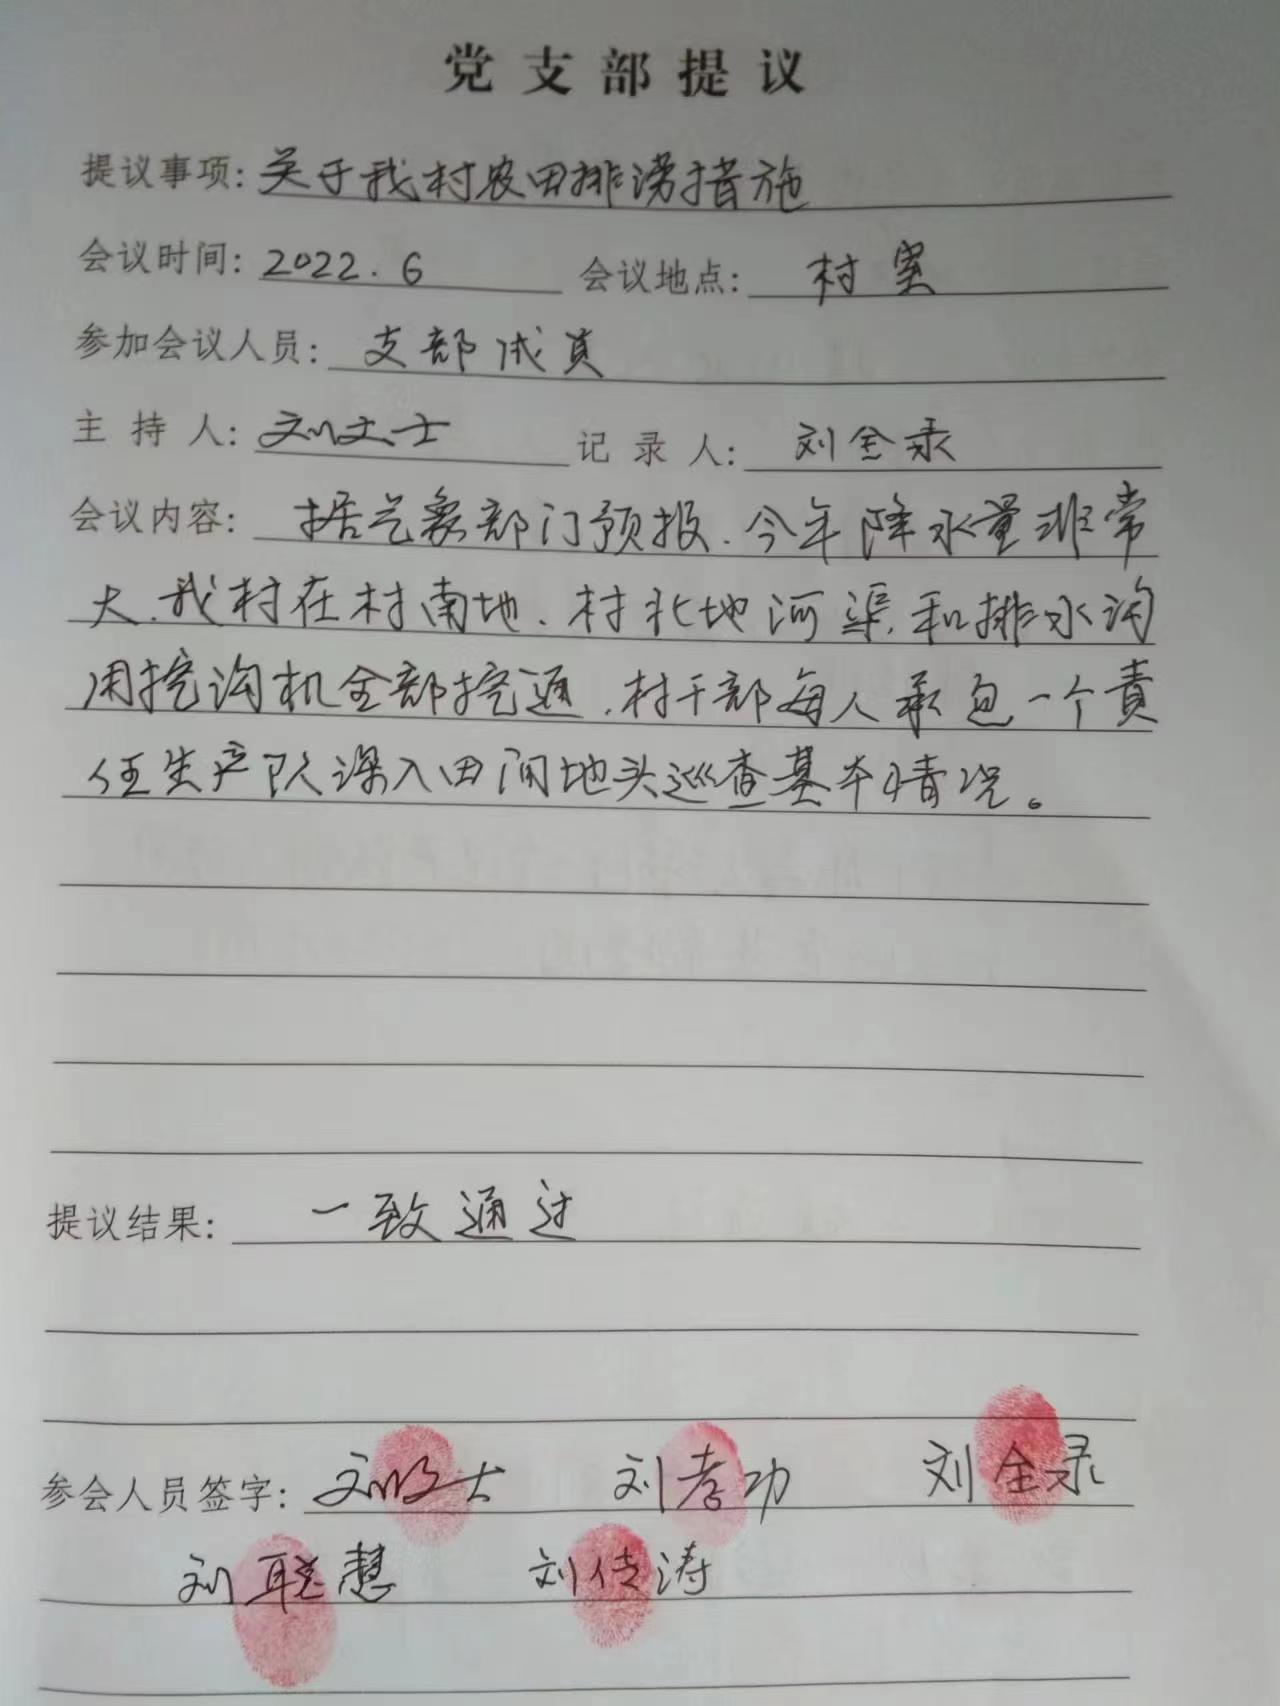 党支部提议
提议事项：关于我村农田排涝措施
会议时间：2022.6 会议地点：村室
参加会议人员：支部成员
主持人：刘文士 记录人：刘全录
会议内容：据气象部门预报.今年降水量非常
大.我村在村南地.村北地河渠.和排水沟
用挖沟机全部挖通.村干部每人承包一个责
任生产队深入田间地头巡查基本情况。
提议结果：一致通过
参会人员签字：刘文士 刘孝功 刘全录
刘聪慧 刘传涛